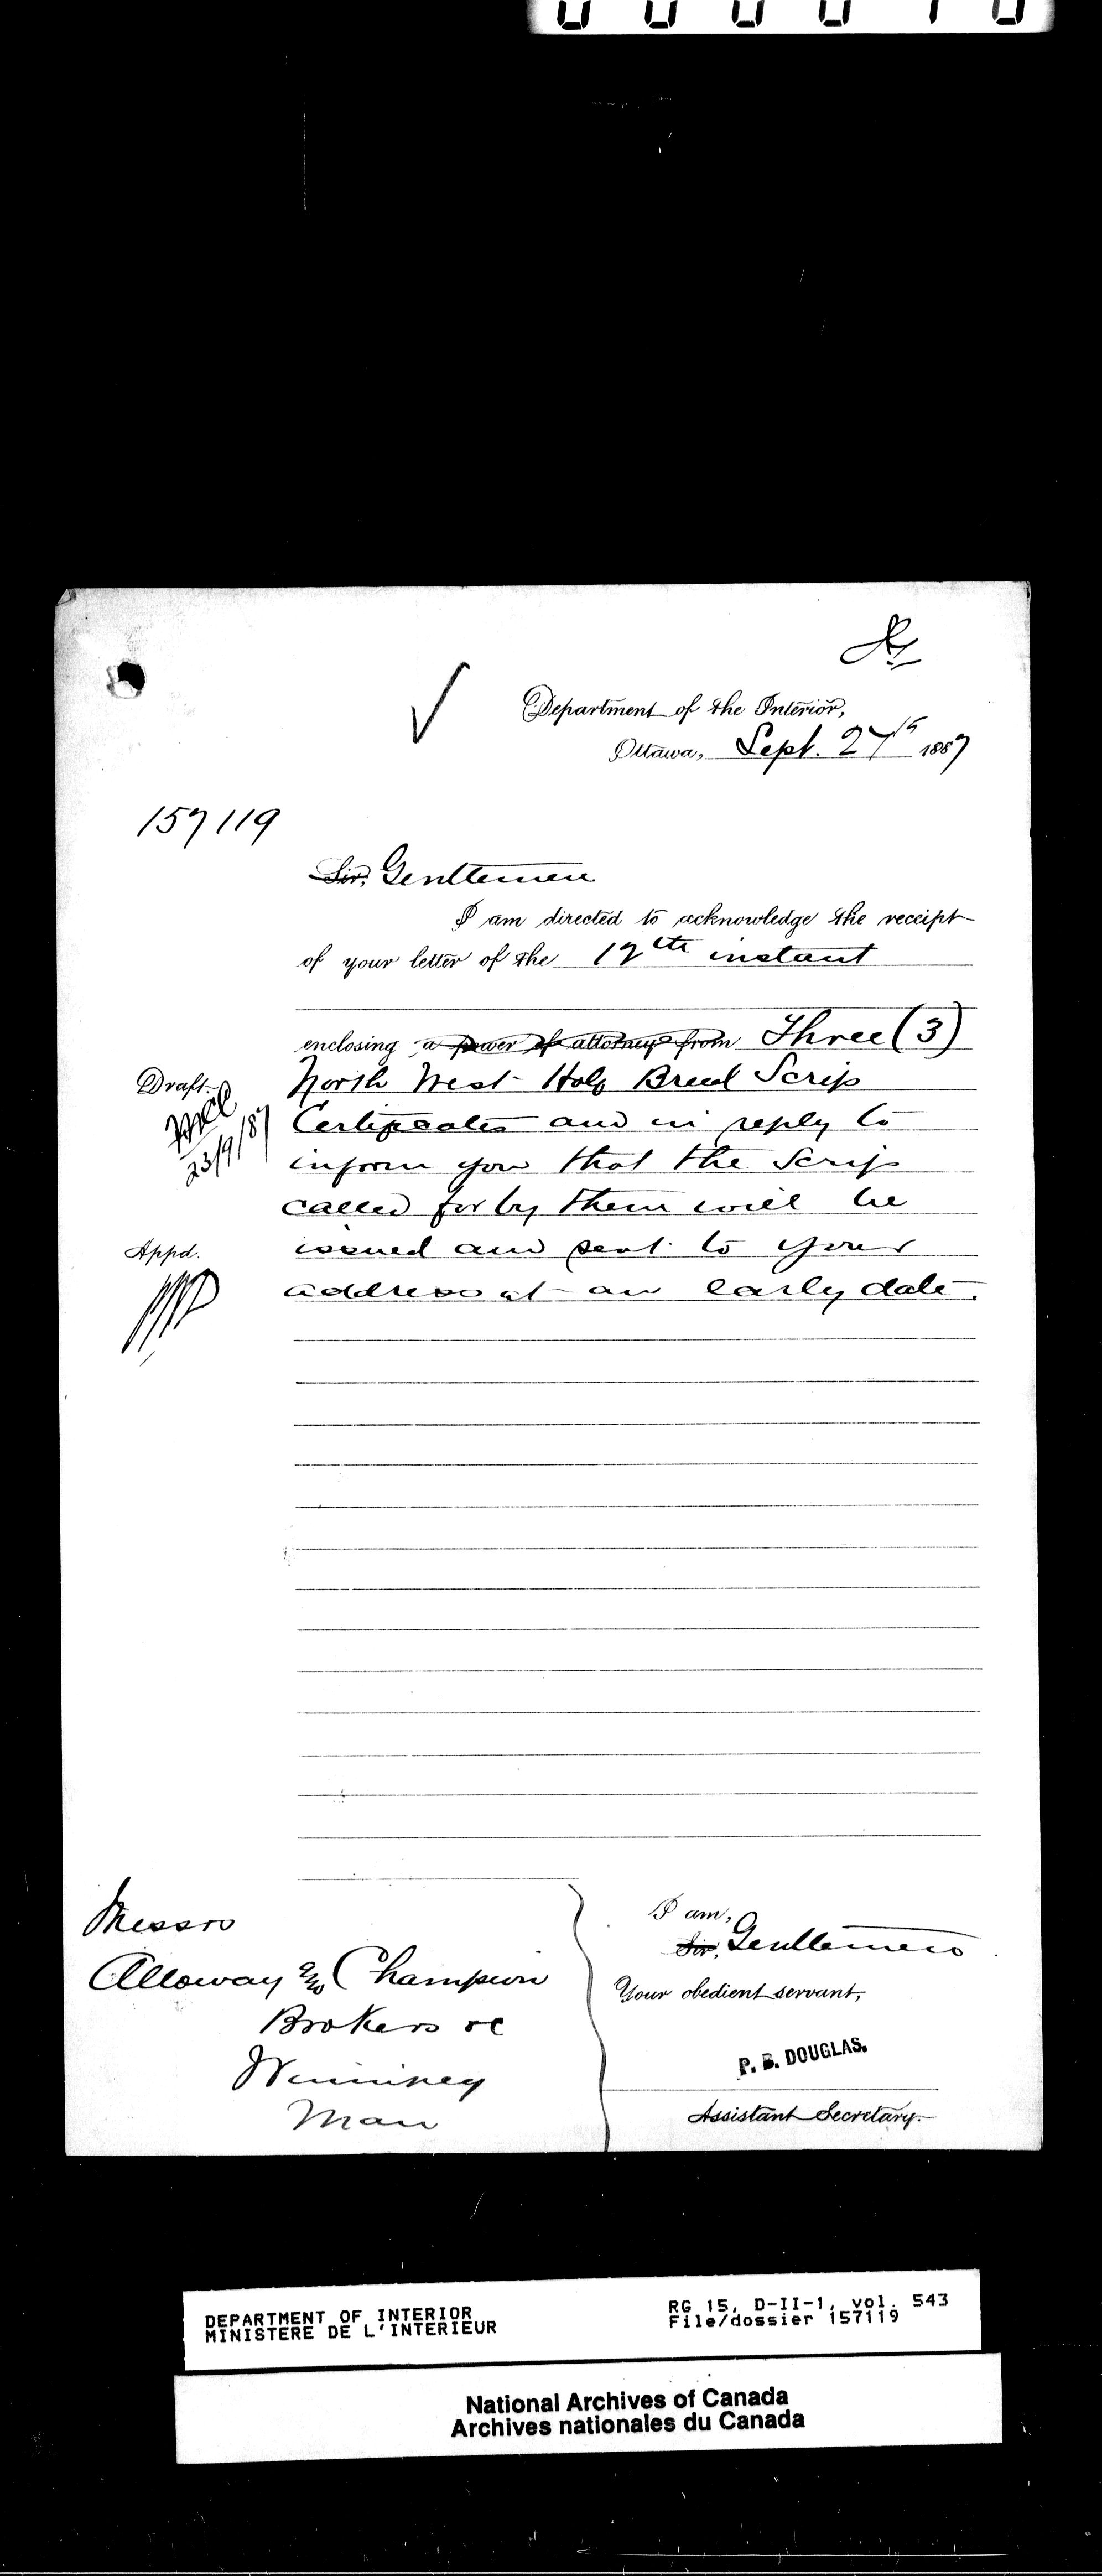 Department of the Interior,
Ottawa, Sept. 27th 1887
157119
Sir, Gentlemen
I am directed to acknowledge the receipt
of your letter of the 12th instant
enclosing a power of attorney from Three (3)
North West Half Breed Scrip
Certificates and in reply to
inform you that the Scrip
called for by them will be
issued and sent to your
address at an early date.
Draft.
23/9/87
Appd.
I am,
Sir, Gentlemen
Your obedient servant,
P. B. DOUGLAS.
Assistant Secretary.
Messrs
Alloway & Champion
Brokers &c
Winnipeg
Man
DEPARTMENT OF INTERIOR
MINISTERE DE L'INTERIEUR
RG 15, D-II-1, vol. 543
File/dossier 157119
National Archives of Canada
Archives nationales du Canada